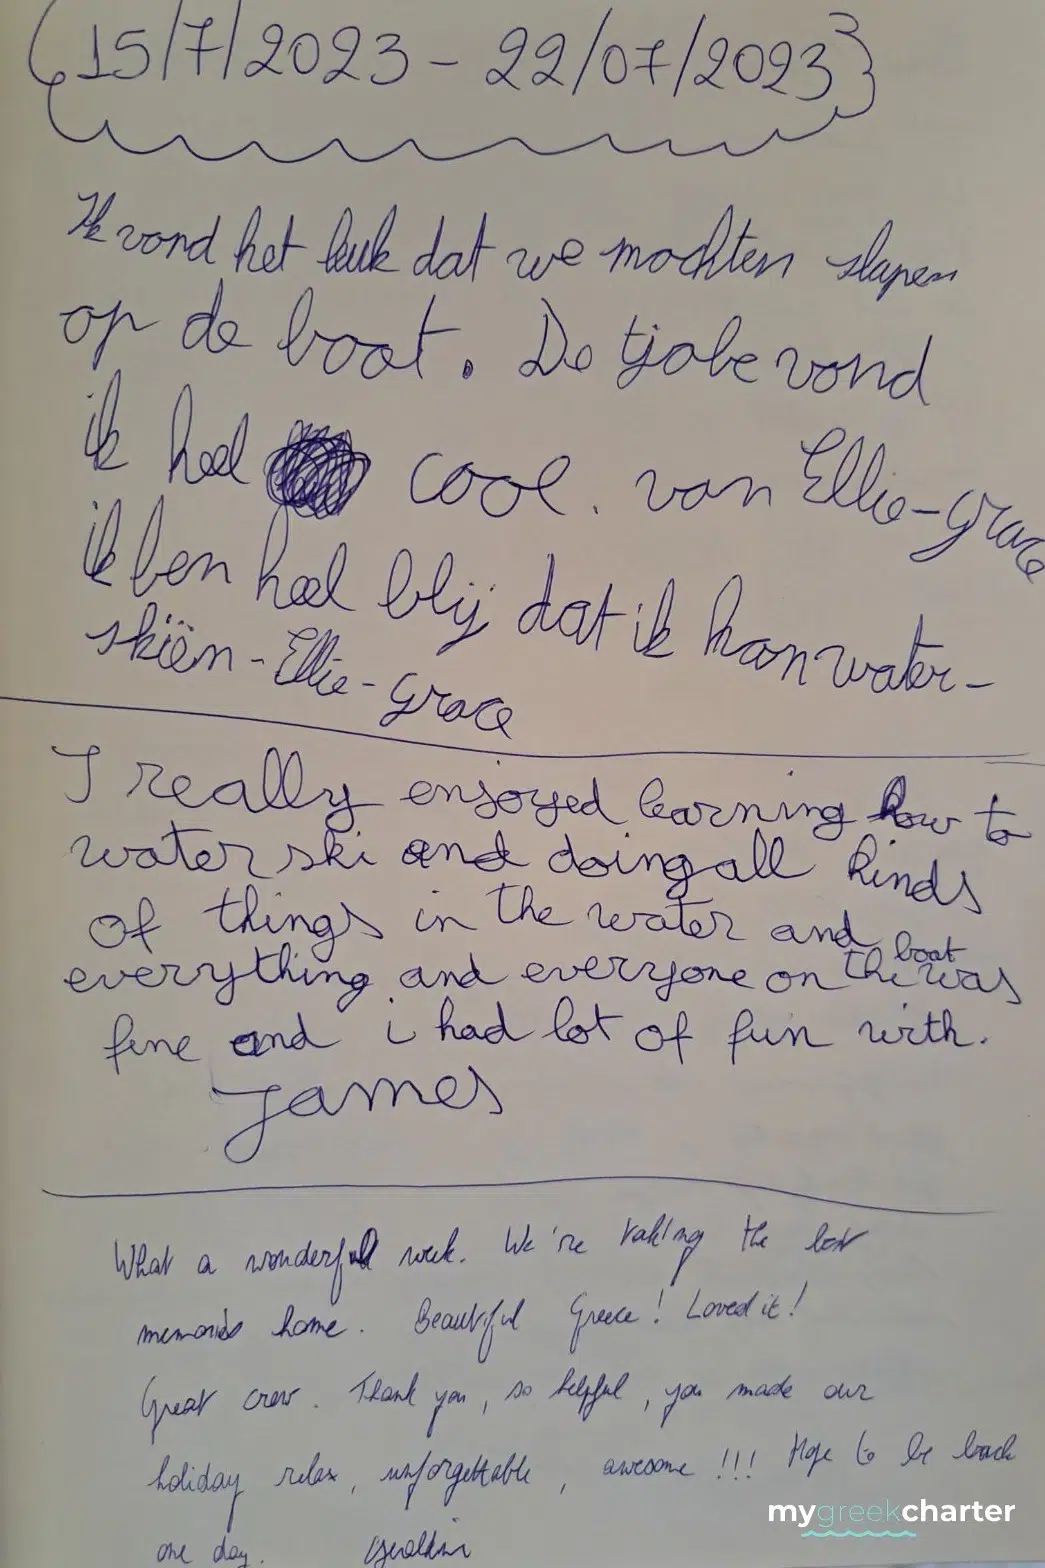 (15/7/2023 - 22/07/2023)
Ik vond het leuk dat we mochten slapen
op de boot. De tjobe vond
ik heel cool. van Ellie-grace
ik ben heel blij dat ik kan water-
skiën - Ellie-grace
I really enjoyed learning how to
water ski and doing all kinds
of things in the water and
everything and everyone on the boat was
fine and i had lot of fun with.
James
What a wonderful week. We're taking the best
memories home. Beautiful Greece! Loved it!
Great crew. Thank you, so helpful, you made our
holiday relax, unforgettable, awesome !!! Hope to be back
one day.
mygreekcharter